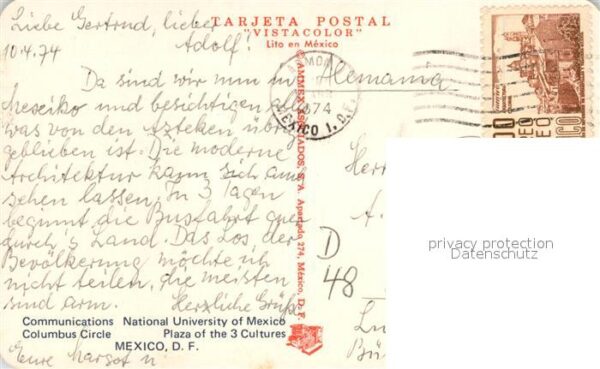 Liebe Gertrud, lieber
Adolf!
10.4.74
TARJETA POSTAL
"VISTACOLOR"
Lito en México
Da sind wir nun in
Mexiko und besichtigen alles
was von den Azteken übrig
geblieben ist. Die moderne
Architektur kann sich auch
sehen lassen. In 3 Tagen
beginnt die Busfahrt quer
durch's Land. Das Los der
Bevölkerung möchte ich
nicht teilen, die meisten
sind arm. Herzliche Grüße
Eure Margot u.
Communications National University of Mexico
Columbus Circle Plaza of the 3 Cultures
MEXICO, D. F.
AMMEX ASOCIADOS, S. A. Apartado 274, México, D. F.
Alemania
1974
MEXICO 1, D. F.
MEXICO
Herr
A.
D
48
privacy protection
Datenschutz